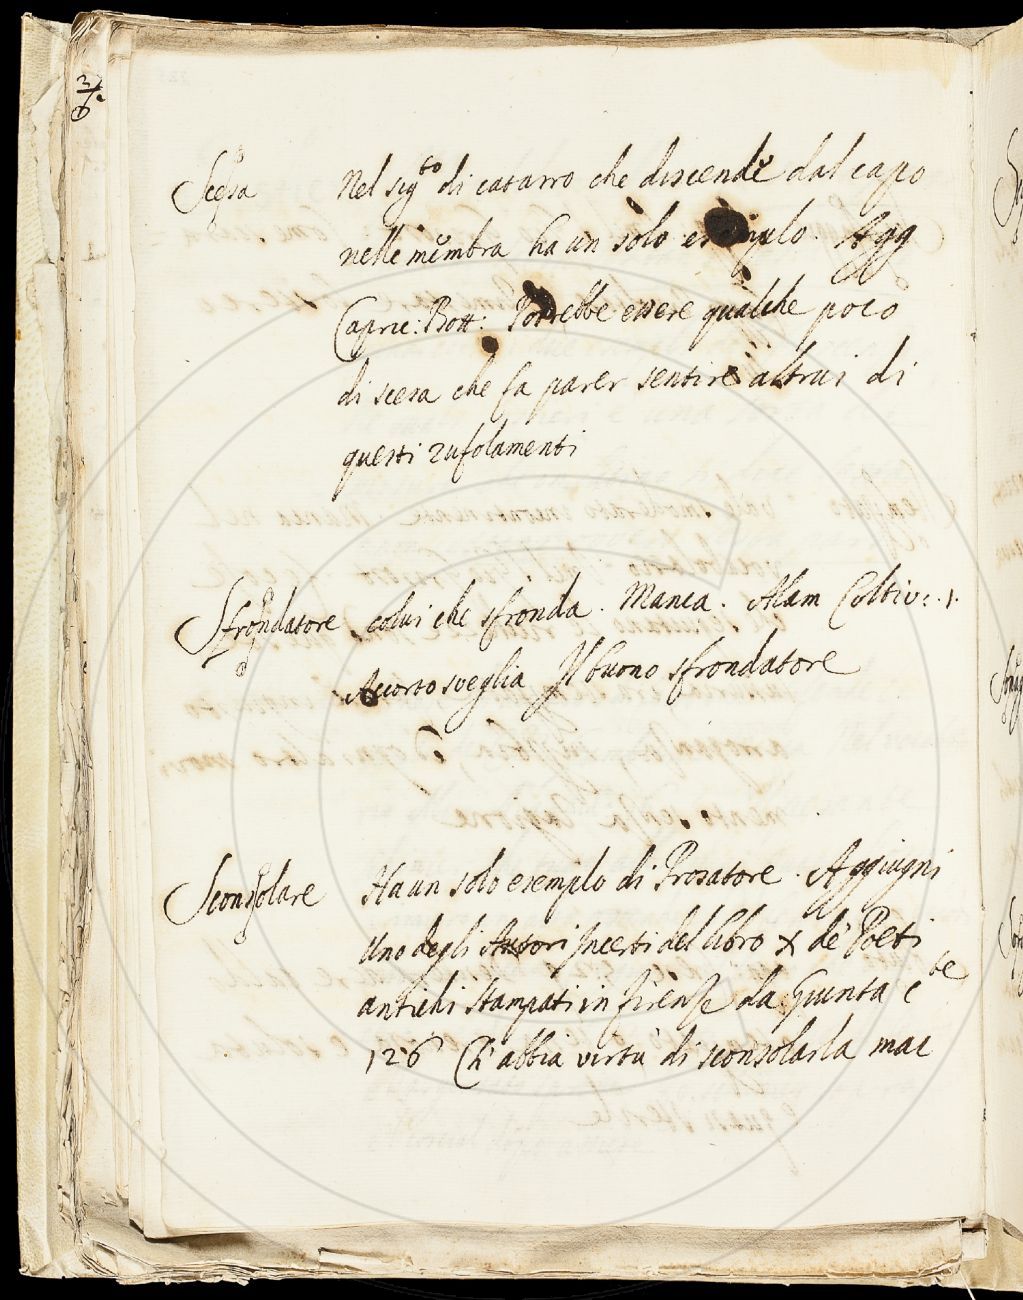 Scesa Nel sig.to di catarro che discende dal capo
nelle membra ha un solo esemplo. Agg
Capric: Bott: Potrebbe essere qualche poco
di scesa che fa parer sentire altrui di
questi zufolamenti
Sfrondatore colui che sfronda. Manca. Alam Coltiv: 1.
Accorto sveglia Il buono sfrondatore
Sconsolare Ha un solo esemplo di Prosatore. Aggiugni
Uno degli Autori Incerti del libro X de' Poeti
antichi stampati in Firenze da Giunta
126 Ch' abbia virtù di sconsolarla mai